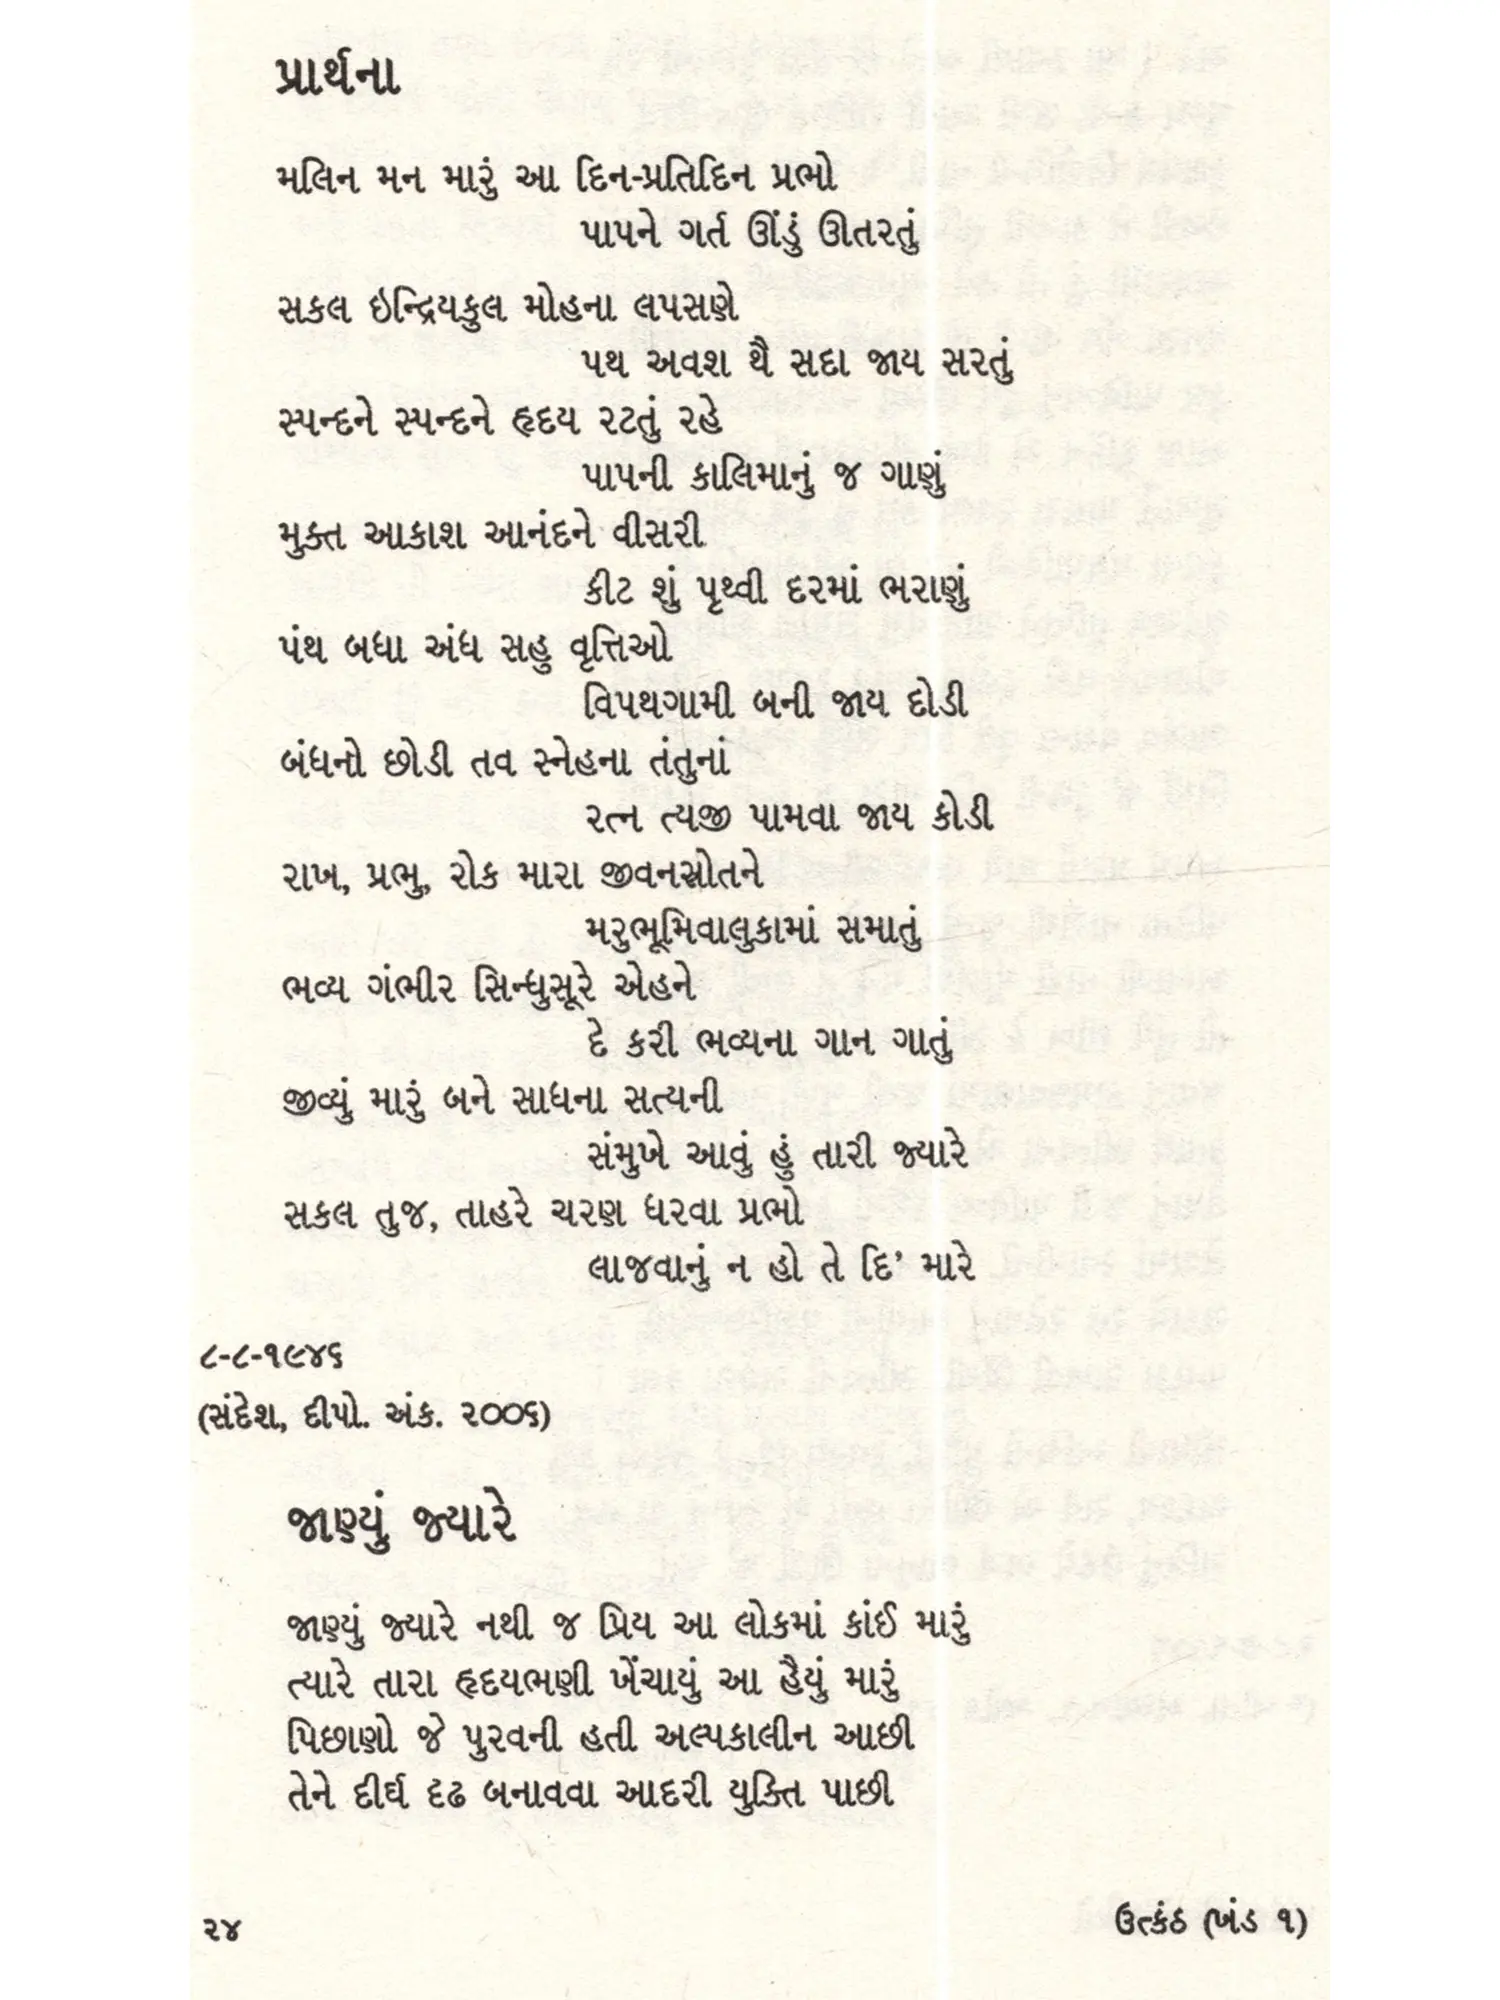 પ્રાર્થના
મલિન મન મારું આ દિન-પ્રતિદિન પ્રભો
પાપને ગર્ત ઊંડું ઊતરતું
સકલ ઇન્દ્રિયકુલ મોહના લપસણે
પથ અવશ થૈ સદા જાય સરતું
સ્પન્દને સ્પન્દને હૃદય રટતું રહે
પાપની કાલિમાનું જ ગાણું
મુક્ત આકાશ આનંદને વીસરી
કીટ શું પૃથ્વી દરમાં ભરાણું
પંથ બધા અંધ સહુ વૃત્તિઓ
વિપથગામી બની જાય દોડી
બંધનો છોડી તવ સ્નેહના તંતુનાં
રત્ન ત્યજી પામવા જાય કોડી
રાખ, પ્રભુ, રોક મારા જીવનસ્રોતને
મરુભૂમિવાલુકામાં સમાતું
ભવ્ય ગંભીર સિન્ધુસૂરે એહને
દે કરી ભવ્યના ગાન ગાતું
જીવ્યું મારું બને સાધના સત્યની
સંમુખે આવું હું તારી જ્યારે
સકલ તુજ, તાહરે ચરણ ધરવા પ્રભો
લાજવાનું ન હો તે દિ' મારે
૮-૮-૧૯૪૬
(સંદેશ, દીપો. અંક. ૨૦૦૬)
જાણ્યું જ્યારે
જાણ્યું જ્યારે નથી જ પ્રિય આ લોકમાં કાંઈ મારું
ત્યારે તારા હૃદયભણી ખેંચાયું આ હૈયું મારું
પિછાણો જે પુરવની હતી અલ્પકાલીન આછી
તેને દીર્ઘ દૃઢ બનાવવા આદરી યુક્તિ પાછી
૨૪
ઉત્કંઠ (ખંડ ૧)